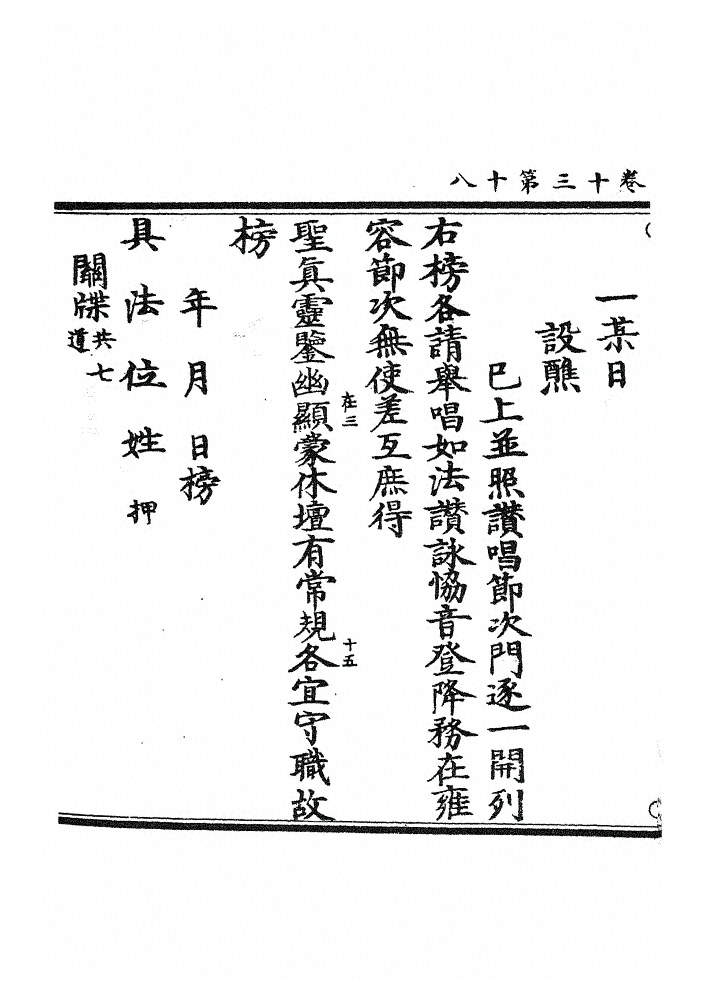 卷十三第十八
一某日
設醮
已上並照讚唱節次門逐一開列
右榜各請舉唱如法讚詠恊音登降務在雍
容節次無使差互庶得
在三
十五
聖眞靈鑒幽顯蒙休壇有常規各宜守職故
榜
年月日榜
具法位姓押
關牒共七道